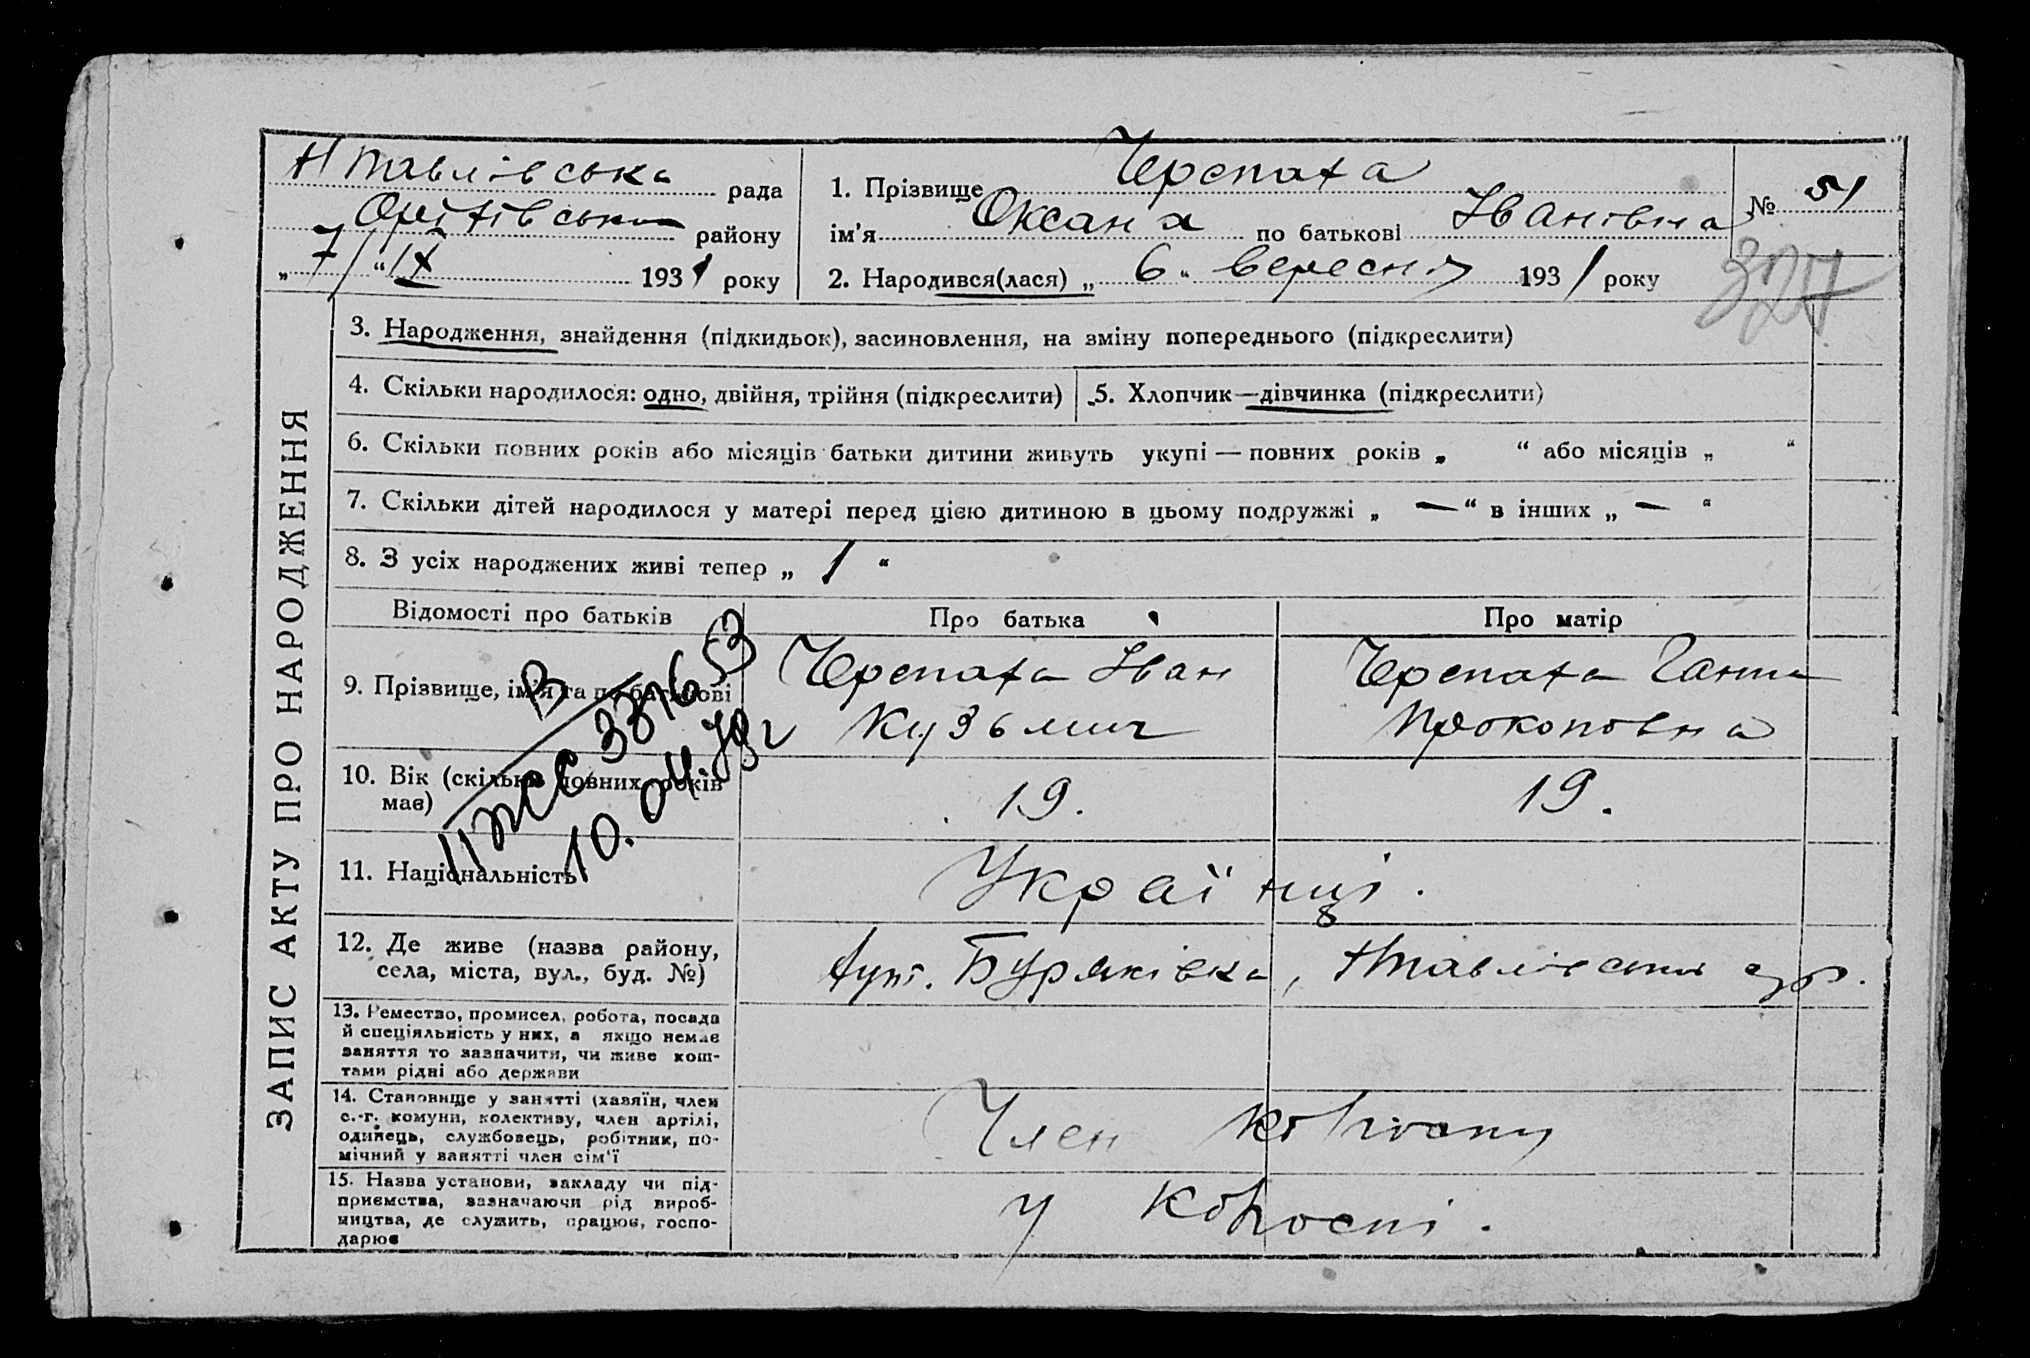 Нпавлівська рада
Оріхівського району
„ 7/ “ IX 1931 року
1. Прізвище Черепаха
ім'я Оксана по батькові Іванівна
2. Народився(лася) „ 6 “ вересня 1931 року
№ 51
327
ЗАПИС АКТУ ПРО НАРОДЖЕННЯ
3. Народження, знайдення (підкидьок), засиновлення, на зміну попереднього (підкреслити)
4. Скільки народилося: одно, двійня, трійня (підкреслити)
5. Хлопчик—дівчинка (підкреслити)
6. Скільки повних років або місяців батьки дитини живуть укупі — повних років „ “ або місяців „ “
7. Скільки дітей народилося у матері перед цією дитиною в цьому подружжі „ — “ в інших „ — “
8. З усіх народжених живі тепер „ 1 “
Відомості про батьків
Про батька
Про матір
9. Прізвище, ім'я та по батькові
Черепаха Іван
Кузьмич
Черепаха Ганна
Прокоповна
10. Вік (скільки повних років
має)
19.
19.
10.04.79г
11. Національність
Українці.
12. Де живе (назва району,
села, міста, вул., буд. №)
хут. Буряківка, Нпавлівської с/р.
13. Ремество, промисел, робота, посада
й спеціяльність у них, а якщо немає
заняття то зазначити, чи живе кош-
тами рідні або держави
14. Становище у занятті (хазяїн, член
с.-г. комуни, колективу, член артілі,
одинець, службовець, робітник, по-
мічний у занятті член сім'ї
Член колгоспу
15. Назва установи, закладу чи під-
приємства, зазначаючи рід вироб-
ництва, де служить, працює, госпо-
дарює
У колгоспі.